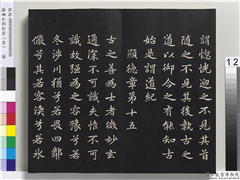 謂惚恍迎之不見其首
随之不見其後執古之
道以御今之有能知古
始是謂道紀
顯德章第十五
古之善為士者微妙玄
通深不可識夫惟不可
識故強為之容豫兮若
冬涉川猶兮若畏四鄰
儼兮其若客渙兮若氷
12